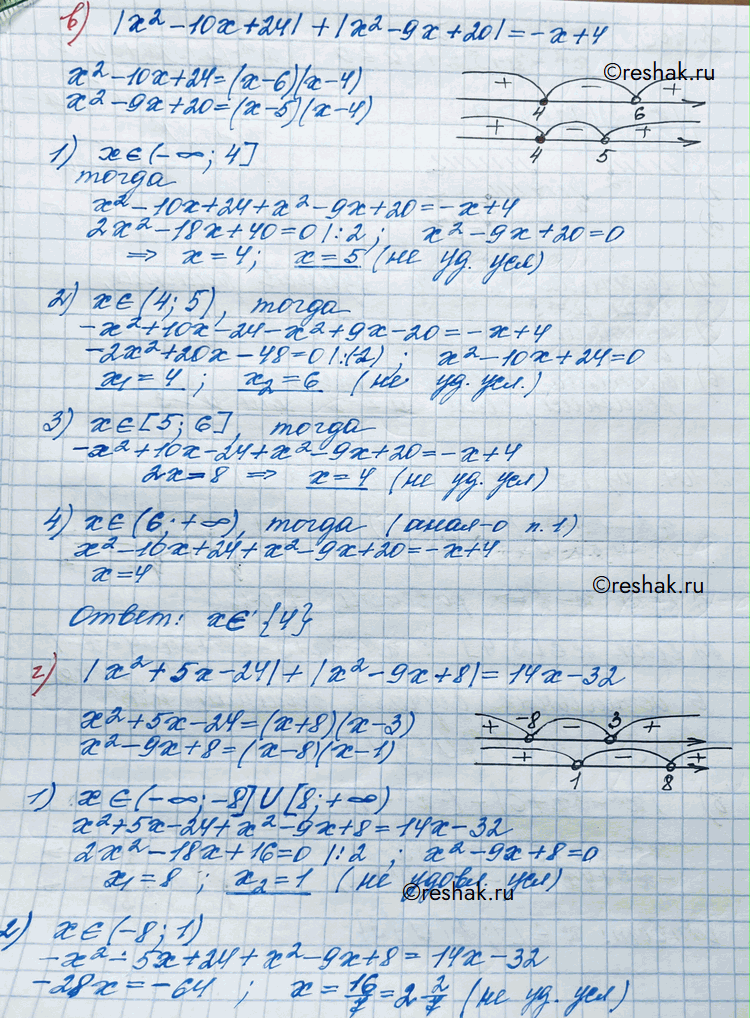 в) |x² - 10x + 24| + |x² - 9x + 20| = -x + 4
x² - 10x + 24 = (x-6)(x-4)
x² - 9x + 20 = (x-5)(x-4)
©reshak.ru
+ - +
4 6
+ - +
4 5
1) x ∈ (-∞; 4]
тогда
x² - 10x + 24 + x² - 9x + 20 = -x + 4
2x² - 18x + 40 = 0 |:2 ; x² - 9x + 20 = 0
⇒ x = 4; x = 5 (не уд. усл)
2) x ∈ (4; 5), тогда
-x² + 10x - 24 - x² + 9x - 20 = -x + 4
-2x² + 20x - 48 = 0 |:(2) ; x² - 10x + 24 = 0
x₁ = 4 ; x₂ = 6 (не уд. усл.)
3) x ∈ [5; 6], тогда
-x² + 10x - 24 + x² - 9x + 20 = -x + 4
2x = 8 ⇒ x = 4 (не уд. усл)
4) x ∈ (6; +∞), тогда (анал-о п. 1)
x² - 10x + 24 + x² - 9x + 20 = -x + 4
x = 4
©reshak.ru
Ответ: x ∈ {4}
г) |x² + 5x - 24| + |x² - 9x + 8| = 14x - 32
x² + 5x - 24 = (x+8)(x-3)
x² - 9x + 8 = (x-8)(x-1)
+ -8 - 3 +
+ - +
1 8
1) x ∈ (-∞; -8] ∪ [8; +∞)
x² + 5x - 24 + x² - 9x + 8 = 14x - 32
2x² - 18x + 16 = 0 |:2 ; x² - 9x + 8 = 0
x₁ = 8 ; x₂ = 1 (не удовл. усл)
©reshak.ru
2) x ∈ (-8; 1)
-x² - 5x + 24 + x² - 9x + 8 = 14x - 32
-28x = -64 ; x = 16/7 = 2 2/7 (не уд. усл)